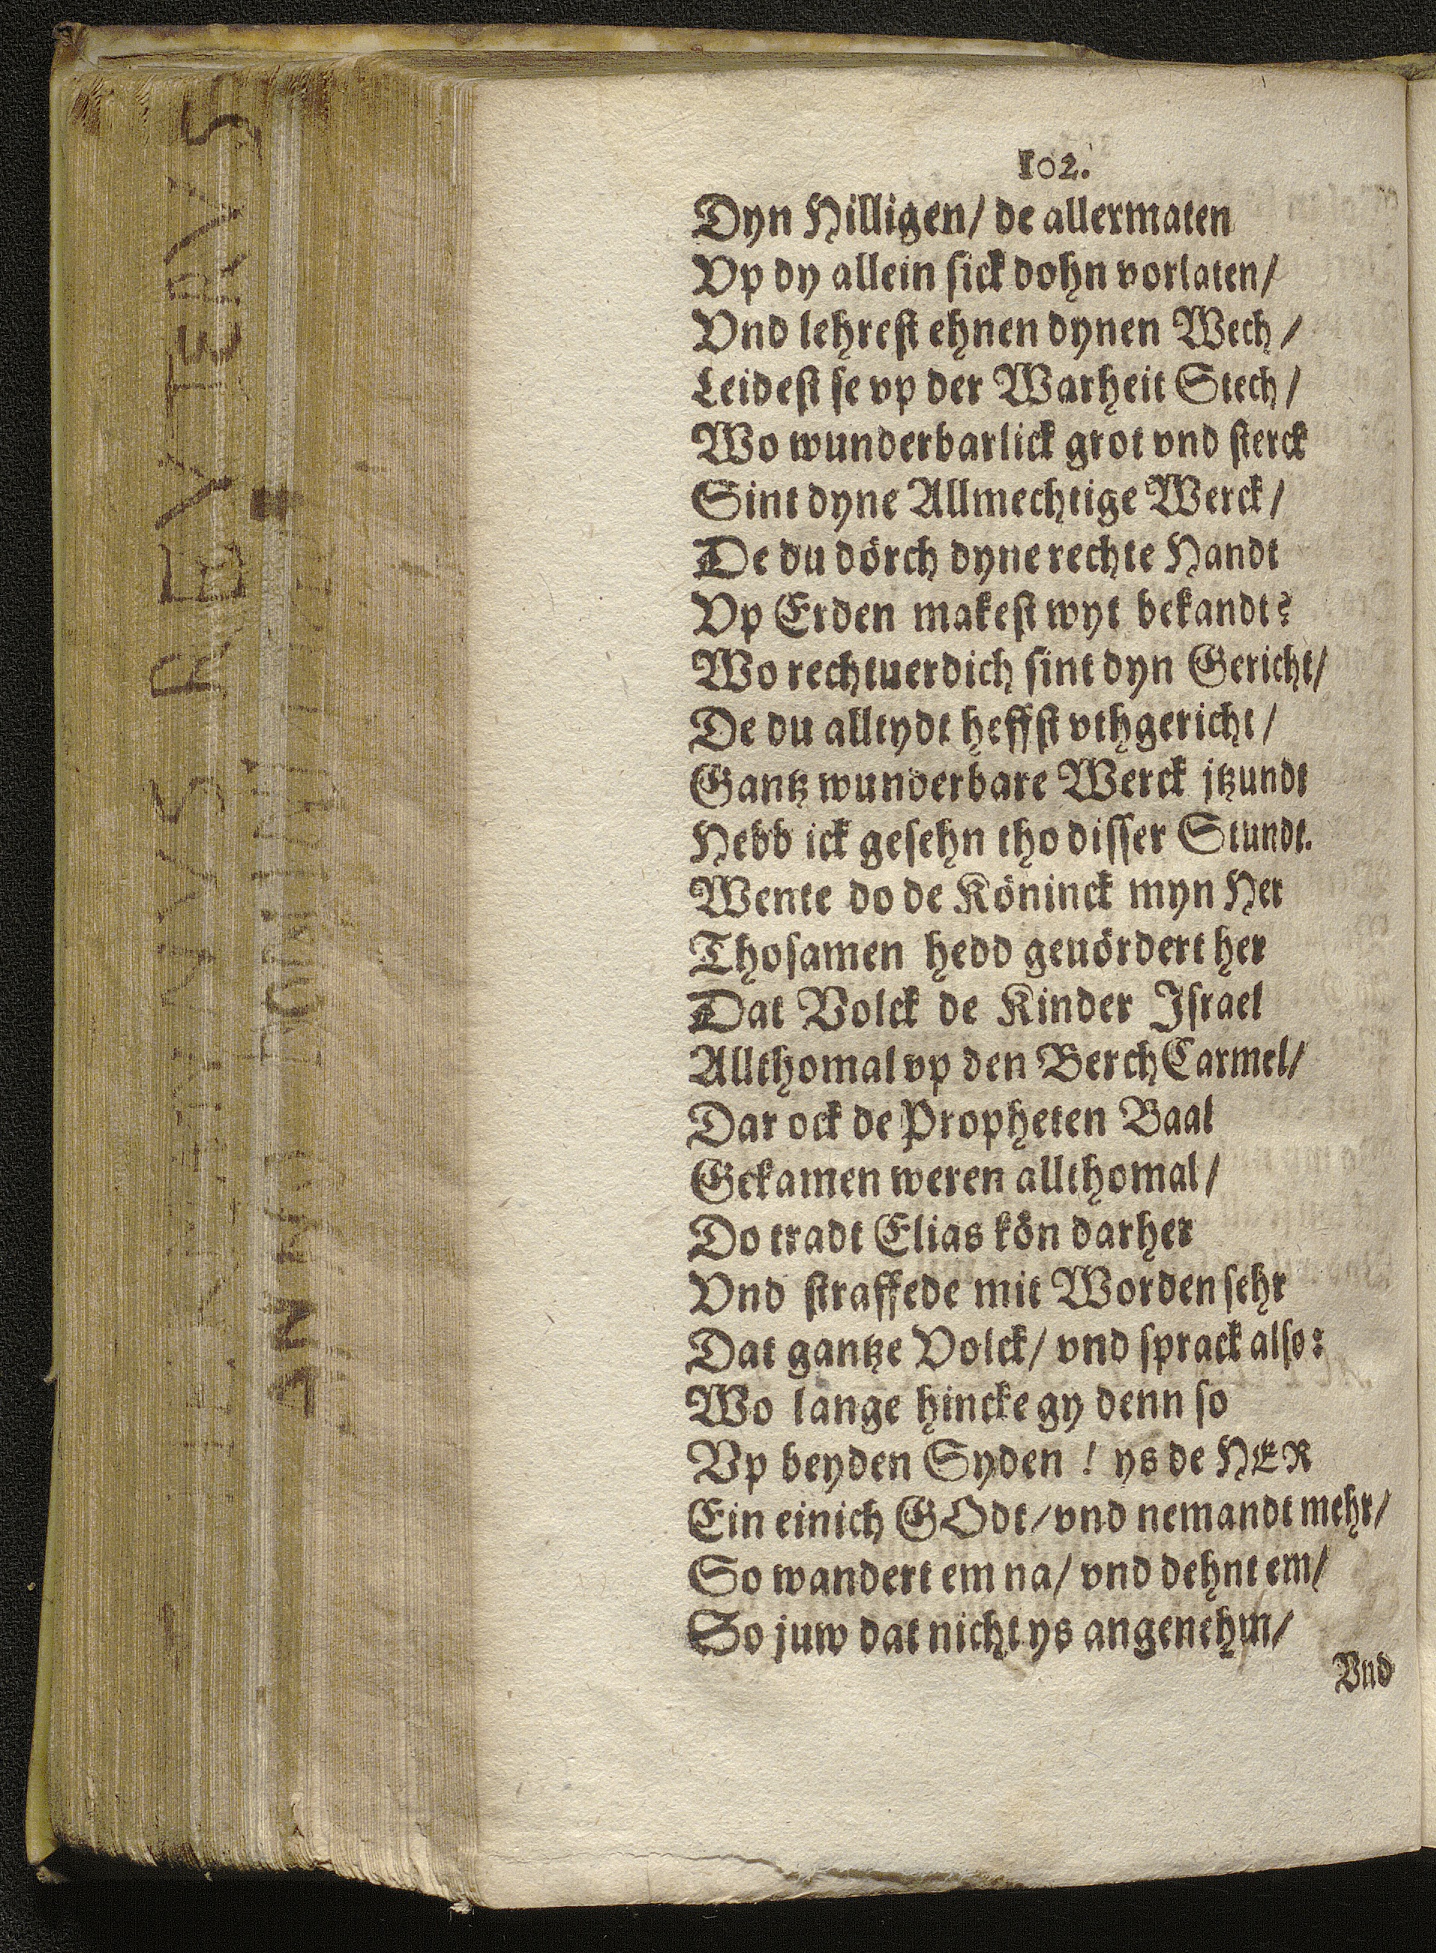 102.
Dyn Hilligen/ de allermaten
Vp dy allein sick dohn vorlaten/
Vnd lehrest ehnen dynen Wech/
Leidest se vp der Warheit Stech/
Wo wunderbarlick grot vnd sterck
Sint dyne Allmechtige Werck/
De du dörch dyne rechte Handt
Vp Erden makest wyt bekandt?
Wo rechtuerdich sint dyn Gericht/
De du alltydt heffst vthgericht/
Gantz wunderbare Werck jtzundt
Hebb ick gesehn tho disser Stundt.
Wente do de Köninck myn Her
Thosamen hedd geuördert her
Dat Volck de Kinder Israel
Allthomal vp den Berch Carmel/
Dar ock de Propheten Baal
Gekamen weren allthomal/
Do tradt Elias kön darher
Vnd straffede mit Worden sehr
Dat gantze Volck/ vnd sprack also:
Wo lange hincke gy denn so
Vp beyden Syden! ys de HER
Ein einich GOdt/ vnd nemandt mehr/
So wandert em na/ vnd dehnt em/
So juw dat nicht ys angenehm/
Vnd
REVTERVS
ANNO DOMINI